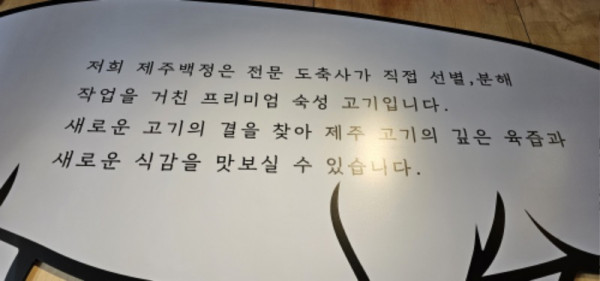 저희 제주백정은 전문 도축사가 직접 선별,분해
작업을 거친 프리미엄 숙성 고기입니다.
새로운 고기의 결을 찾아 제주 고기의 깊은 육즙과
새로운 식감을 맛보실 수 있습니다.